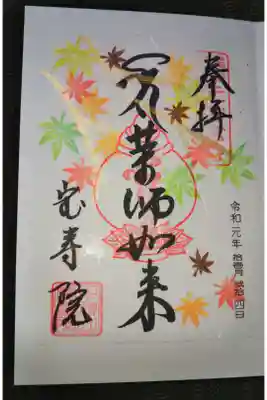 奉拝
令和元年 拾壹月 弐拾四日
薬師如来
宝寿院